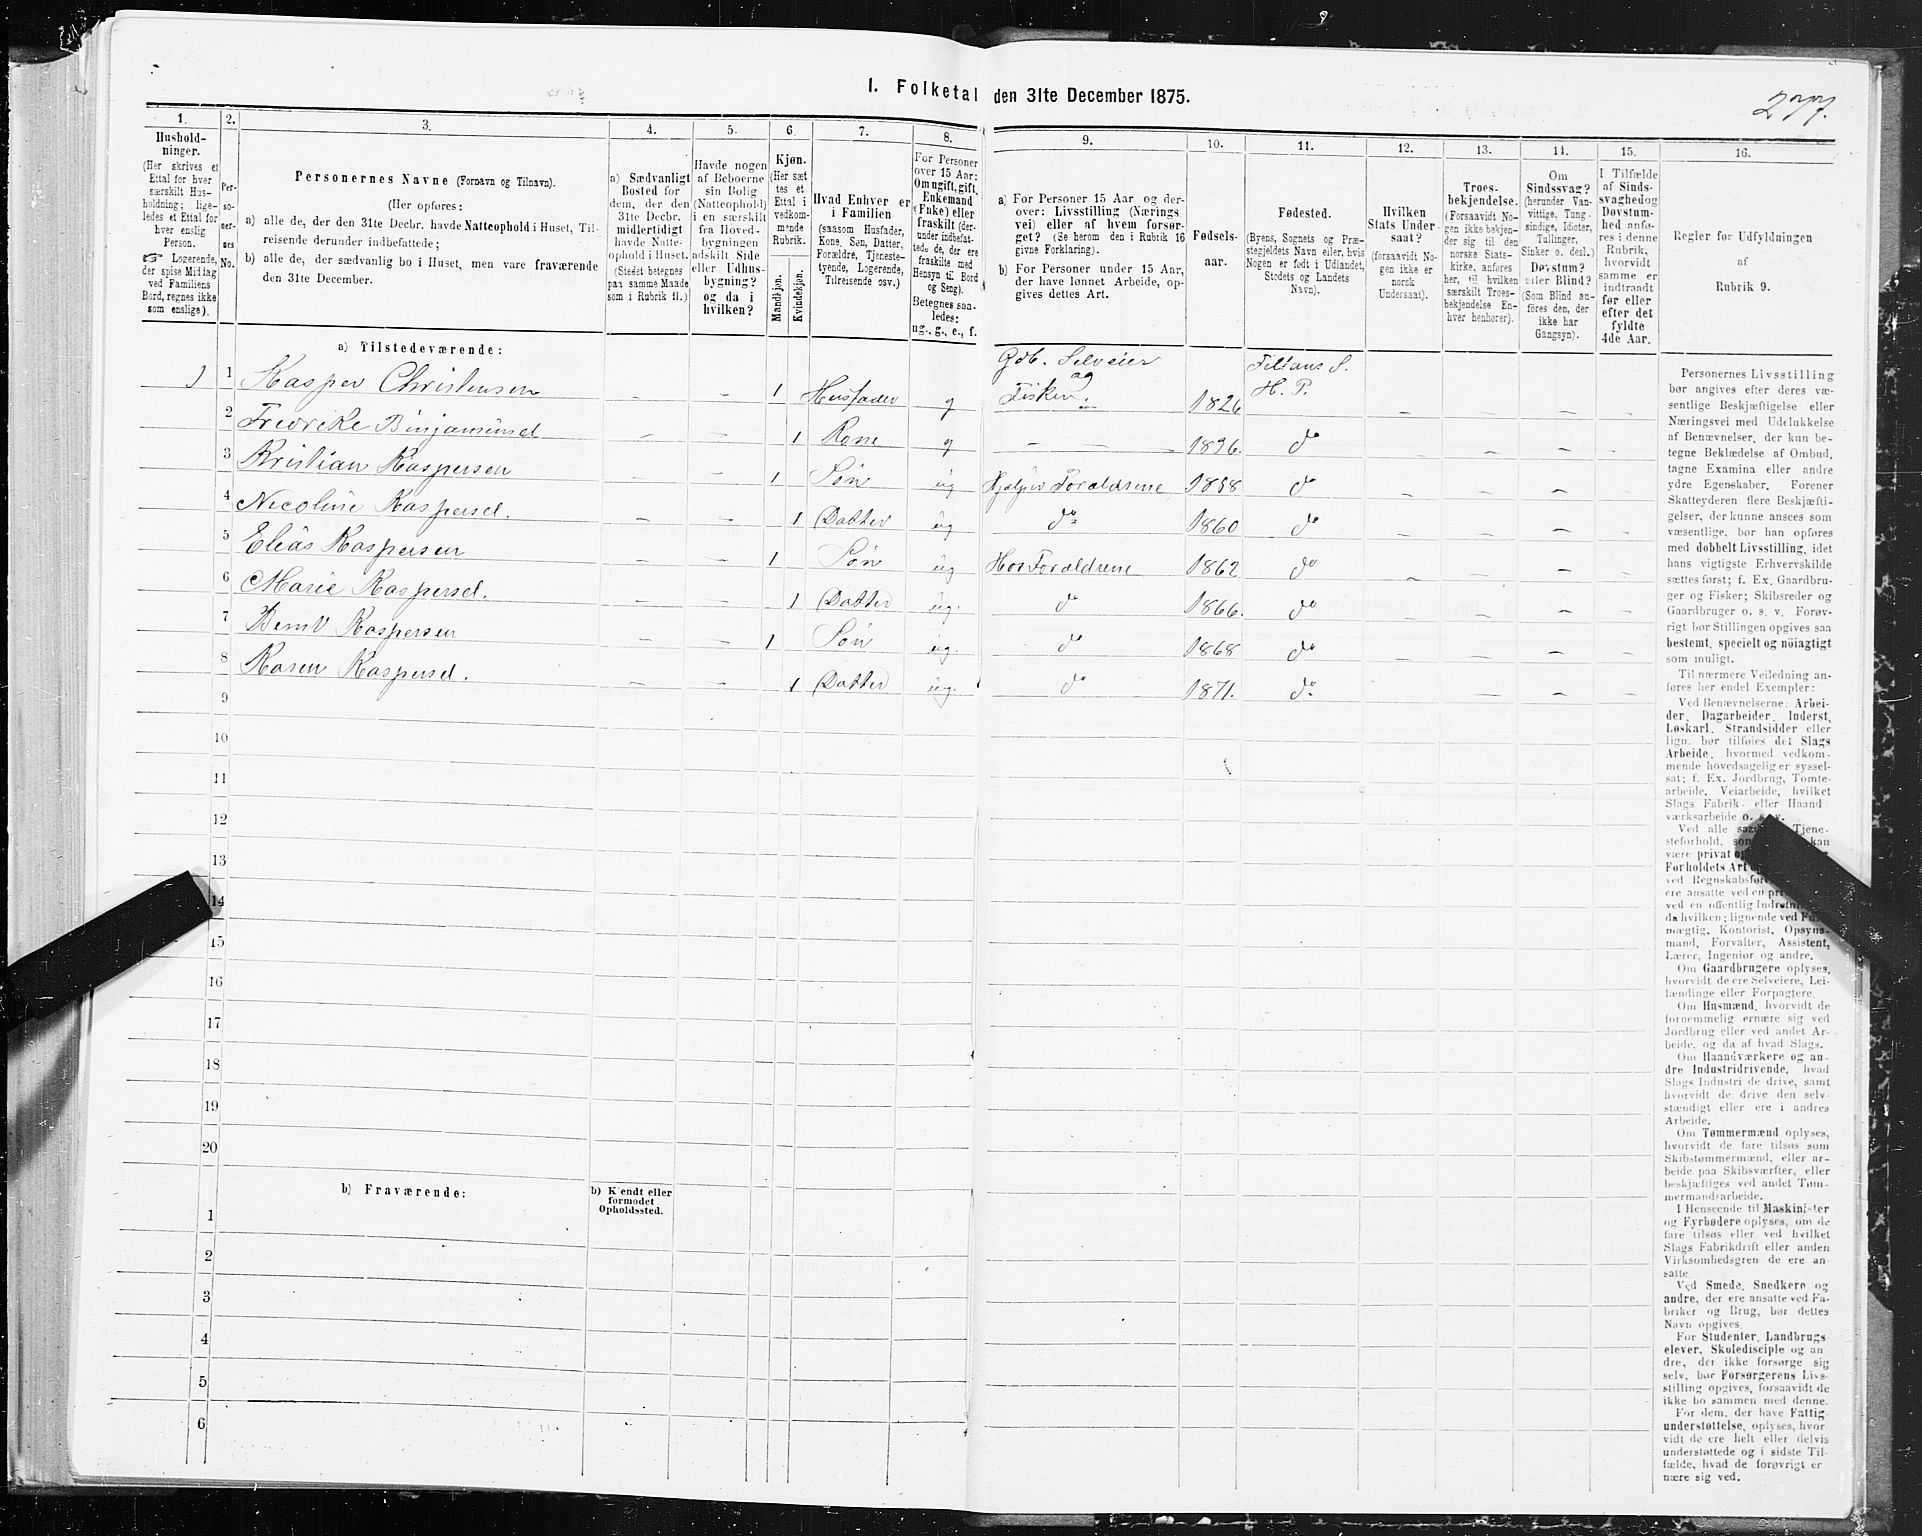 I. Folketal den 31te December 1875.
277.
1. 2. 3. 4. 5. 6. 7. 8. 9. 10. 11. 12. 13. 14. 15. 16.
Hushold-
ninger.
(Her skrives et
Ettal for hver
særskilt Hus-
holdning; lige-
ledes et Ettal for
hver enslig
Person.
☞ Logerende,
der spise Middag
ved Familiens
Bord, regnes ikke
som enslige).
Per-
so-
ner-
nes
No.
Personernes Navne (Fornavn og Tilnavn).
(Her opføres:
a) alle de, der den 31te Decbr. havde Natteophold i Huset, Til-
reisende derunder indbefattede;
b) alle de, der sædvanlig bo i Huset, men vare fraværende
den 31te December.
a) Sædvanligt
Bosted for
dem, der den
31te Decbr.
midlertidigt
havde Natte-
ophold i Huset.
(Stedet betegnes
paa samme Maade
som i Rubrik 11.)
Havde nogen
af Beboerne
sin Bolig
(Natteophold)
i en særskilt
fra Hoved-
bygningen
adskilt Side
eller Udhus-
bygning?
og da i
hvilken?
Kjøn.
(Her sæt
tes et
Ettal i
vedkom-
mende
Rubrik.
Mandkjøn.
Kvindekjøn.
Hvad Enhver er
i Familien
(saasom Husfader,
Kone, Søn, Datter,
Forældre, Tjeneste-
tyende, Logerende,
Tilreisende osv.)
For Personer
over 15 Aar:
Om ugift, gift,
Enkemand
(Enke) eller
fraskilt (der-
under indbefat-
tede de, der ere
fraskilte med
Hensyn til Bord
og Seng).
Betegnes saa-
ledes:
ug., g., e., f.
a) For Personer 15 Aar og der-
over: Livsstilling (Nærings
vei) eller af hvem forsør-
get? (Se herom den i Rubrik 16
givne Forklaring).
b) For Personer under 15 Aar,
der have lønnet Arbeide, op-
gives dettes Art.
Fødsels-
aar.
Fødested.
(Byens, Sognets og Præ-
stegjeldets Navn eller, hvis
Nogen er født i Udlandet,
Stedets og Landets
Navn).
Hvilken
Stats Under-
saat?
(forsaavidt No-
gen ikke er
norsk
Undersaat).
Troes-
bekjendelse.
(Forsaavidt No-
gen ikke bekjen-
der sig til den
norske Stats-
kirke, anføres
her, til hvilken
særskilt Troes-
bekjendelse En-
hver henhører).
Om
Sindssvag?
(herunder Van-
vittige, Tung-
sindige, Idioter,
Tullinger,
Sinker o. desl.)
Døvstum?
eller Blind?
(Som Blind an-
føres den, der
ikke har
Gangsyn).
I Tilfælde
af Sinds-
svaghed og
Døvstum-
hed anfø-
res i denne
Rubrik,
hvorvidt
samme er
indtraadt
før eller
efter det
fyldte
4de Aar.
Regler før Udfyldningen
af
Rubrik 9.
a) Tilstedeværende:
1 1 Kasper Christensen – – 1 Husfader g Gdb. Selveier og Fisker. 1826 H. P. – – – –
2 Fredrike Binjaminsd – – 1 Kone g – – 1826. do – – – –
3 Kristian Kaspersen – 1 Søn ug Hjelper Foraldrene 1858 do – – – –
4 Nicoline Kaspersd. – – 1 Datter ug do 1860 do – –
5 Elias Kaspersen – 1 Søn ug Hos Foraldrene 1862 do – – – –
6 Marie Kaspersd. 1 Datter ug. do 1866. do – –
7 Kaspersen – – 1 Søn ug. do 1868 do – – – –
8 Karen Kaspersd. – – 1 Datter ug. do 1871. do – – – –
9
10
11
12
13
14
15
16
17
18
19
20
b) Fraværende:
b) Kjendt eller
formodet
Opholdssted.
1
2
3
4
5
6
Personernes Livsstilling
bør angives efter deres væ-
sentlige Beskjæftigelse eller
Næringsvei med Udelukkelse
af Benævnelser, der kun be-
tegne Beklædelse af Ombud,
tagne Examina eller andre
ydre Egenskaber. Forener
Skatteyderen flere Beskjæfti-
gelser, der kunne ansees som
væsentlige, bør han opføres
med dobbelt Livsstilling, idet
hans vigtigste Erhvervskilde
sættes først; f. Ex. Gaardbru-
ger og Fisker; Skibsreder og
Gaardbruger o. s. v. Forøv-
rigt bør Stillingen opgives saa
bestemt, specielt og nöiagtigt
som muligt.
Til nærmere Veiledning an-
føres her endel Exempler:
Ved Benævnelserne: Arbei-
der, Dagarbeider, Inderst,
Løskarl, Strandsidder eller
lign. bør tilføies det Slags
Arbeide, hvormed vedkom-
mende hovedsagelig er syssel-
sat; f. Ex. Jordbrug, Tomte-
arbeide, Veiarbeide, hvilket
Slags Fabrik- eller Haand
værksarbeide o. s. v.
Ved alle Tjene-
steforhold, kan
være privat
Forholdets Art
ved Regnskabsfør
ere ansatte ved en
ved en offentlig Indretn
da hvilken; lignende ved
mægtig, Kontorist, Opsyns-
mand, Forvalter, Assistent,
Lærer, Ingeniør og andre.
Om Gaardbrugere oplyses,
hvorvidt de ere Selveiere, Lei-
lændinge eller Forpagtere.
Om Husmænd, hvorvidt de
fornemmelig ernære sig ved
Jordbrug eller ved andet Ar-
beide, og da af hvad Slags.
Om Haandværkere og an-
dre Industridrivende, hvad
Slags Industri de drive, samt
hvorvidt de drive den selv-
stændigt eller ere i andres
Arbeide.
Om Tømmermænd oplyses,
hvorvidt de fare tilsøs som
Skibstømmermænd, eller ar-
beide paa Skibsværfter, eller
beskjæftiges ved andet Tøm-
mermandsarbeide.
I Henseende til Maskinister
og Fyrbødere oplyses, om de
fare tilsøs eller ved hvilket
Slags Fabrikdrift eller anden
Virksomhedsgren de ere an-
satte.
Ved Smede, Snedkere og
andre, der ere ansatte ved Fa-
briker og Brug, bør dettes
Navn opgives.
For Studenter, Landbrugs
elever, Skoledisciple og an
dre, der ikke forsørge sig
selv, bør Forsørgerens Livs-
stilling opgives, forsaavidt de
ikke bo sammen med denne.
For dem, der have Fattig-
understøttelse, oplyses, hvor
vidt de ere helt eller delvis
understøttede og i sidste Til-
fælde, hvad de forøvrigt er
nære sig ved.